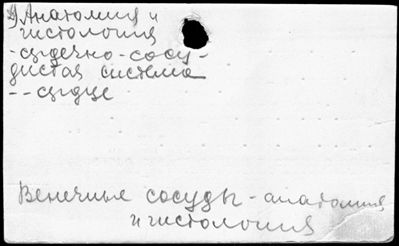 Анатомия и
гистология
-сердечно-сосу-
дистая система
--сердце
Венечные сосуды-анатомия
и гистология